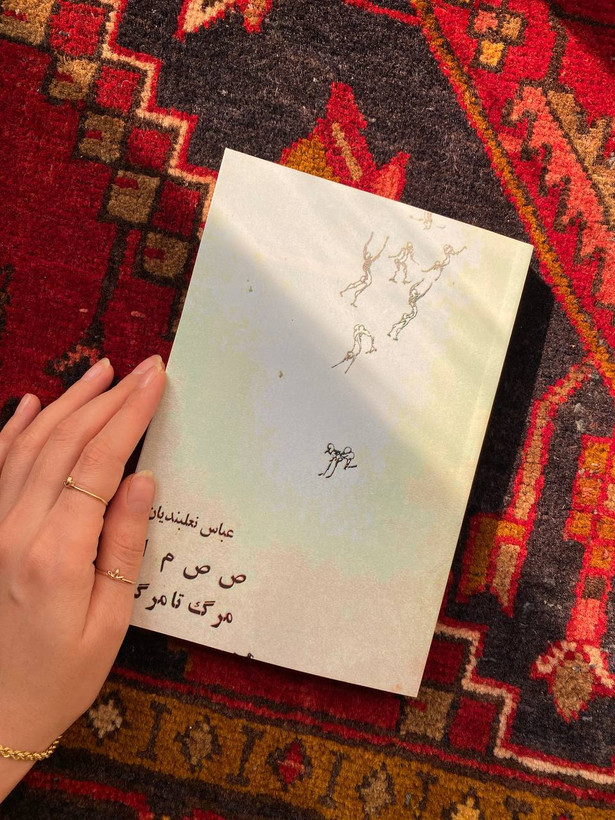 عباس نعلبندیان
ص ص م
مرگ تا مرگ